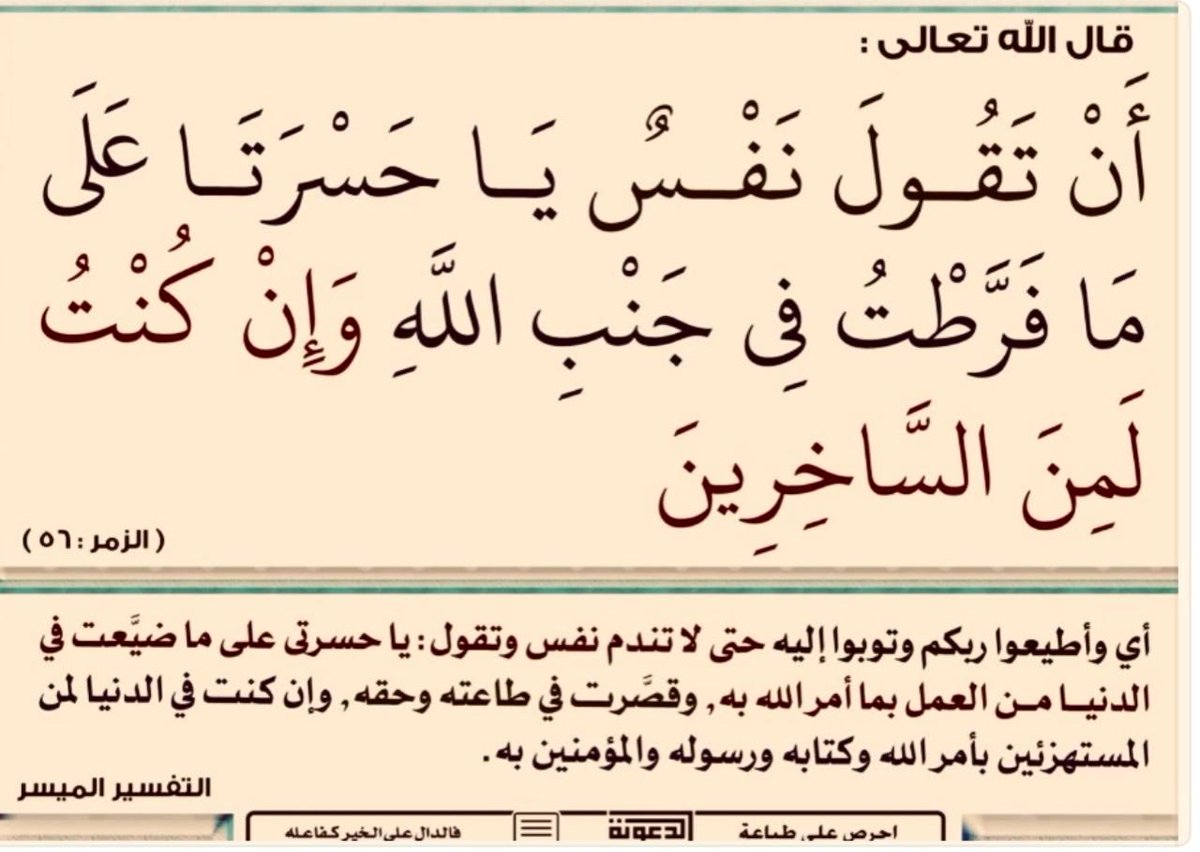 قال الله تعالى :
أَنْ تَقُولَ نَفْسٌ يَا حَسْرَتَا عَلَى
مَا فَرَّطْتُ فِي جَنْبِ اللَّهِ وَإِنْ كُنْتُ
لَمِنَ السَّاخِرِينَ
( الزمر : ٥٦ )
أي وأطيعوا ربكم وتوبوا إليه حتى لا تندم نفس وتقول: يا حسرتى على ما ضيَّعت في
الدنيا من العمل بما أمر الله به, وقصَّرت في طاعته وحقه, وإن كنت في الدنيا لمن
المستهزئين بأمر الله وكتابه ورسوله والمؤمنين به.
التفسير الميسر
احرص على طباعة الدعوية فالدال على الخير كفاعله